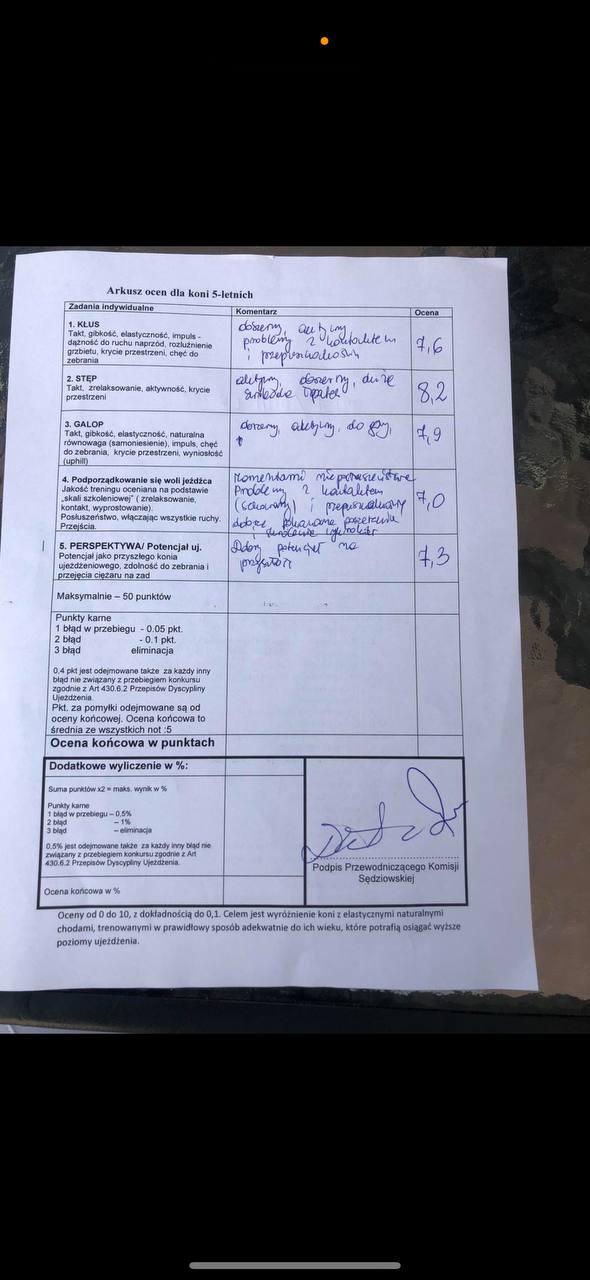 Arkusz ocen dla koni 5-letnich
Zadania indywidualne
Komentarz
Ocena
1. KŁUS
Takt, gibkość, elastyczność, impuls -
dążność do ruchu naprzód, rozluźnienie
grzbietu, krycie przestrzeni, chęć do
zebrania
obszerny, aktywny
problemy z kontaktem
i przepuszczalnością
7,6
2. STĘP
Takt, zrelaksowanie, aktywność, krycie
przestrzeni
aktywny, obszerny, duża
łopatek
8,2
3. GALOP
Takt, gibkość, elastyczność, naturalna
równowaga (samoniesienie), impuls, chęć
do zebrania, krycie przestrzeni, wyniosłość
(uphill)
obszerny, aktywny, do góry,
7,9
4. Podporządkowanie się woli jeźdźca
Jakość treningu oceniana na podstawie
„skali szkoleniowej" ( zrelaksowanie,
kontakt, wyprostowanie).
Posłuszeństwo, włączając wszystkie ruchy.
Przejścia.
Momentami nieposłuszeństwa
Problemy z kontaktem
i
dobrze pokazane poszerzenia
i
7,0
5. PERSPEKTYWA/ Potencjał uj.
Potencjał jako przyszłego konia
ujeżdżeniowego, zdolność do zebrania i
przejęcia ciężaru na zad
Dobry potencjał na
przyszłość
7,3
Maksymalnie – 50 punktów
Punkty karne
1 błąd w przebiegu - 0.05 pkt.
2 błąd - 0.1 pkt.
3 błąd eliminacja
0,4 pkt jest odejmowane także za każdy inny
błąd nie związany z przebiegiem konkursu
zgodnie z Art 430.6.2 Przepisów Dyscypliny
Ujeżdżenia.
Pkt. za pomyłki odejmowane są od
oceny końcowej. Ocena końcowa to
średnia ze wszystkich not :5
Ocena końcowa w punktach
Dodatkowe wyliczenie w %:
Suma punktów x2 = maks. wynik w %
Punkty karne
1 błąd w przebiegu – 0,5%
2 błąd – 1%
3 błąd – eliminacja
0,5% jest odejmowane także za każdy inny błąd nie
związany z przebiegiem konkursu zgodnie z Art
430.6.2 Przepisów Dyscypliny Ujeżdżenia.
Podpis Przewodniczącego Komisji
Sędziowskiej
Ocena końcowa w %
Oceny od 0 do 10, z dokładnością do 0,1. Celem jest wyróżnienie koni z elastycznymi naturalnymi
chodami, trenowanymi w prawidłowy sposób adekwatnie do ich wieku, które potrafią osiągać wyższe
poziomy ujeżdżenia.